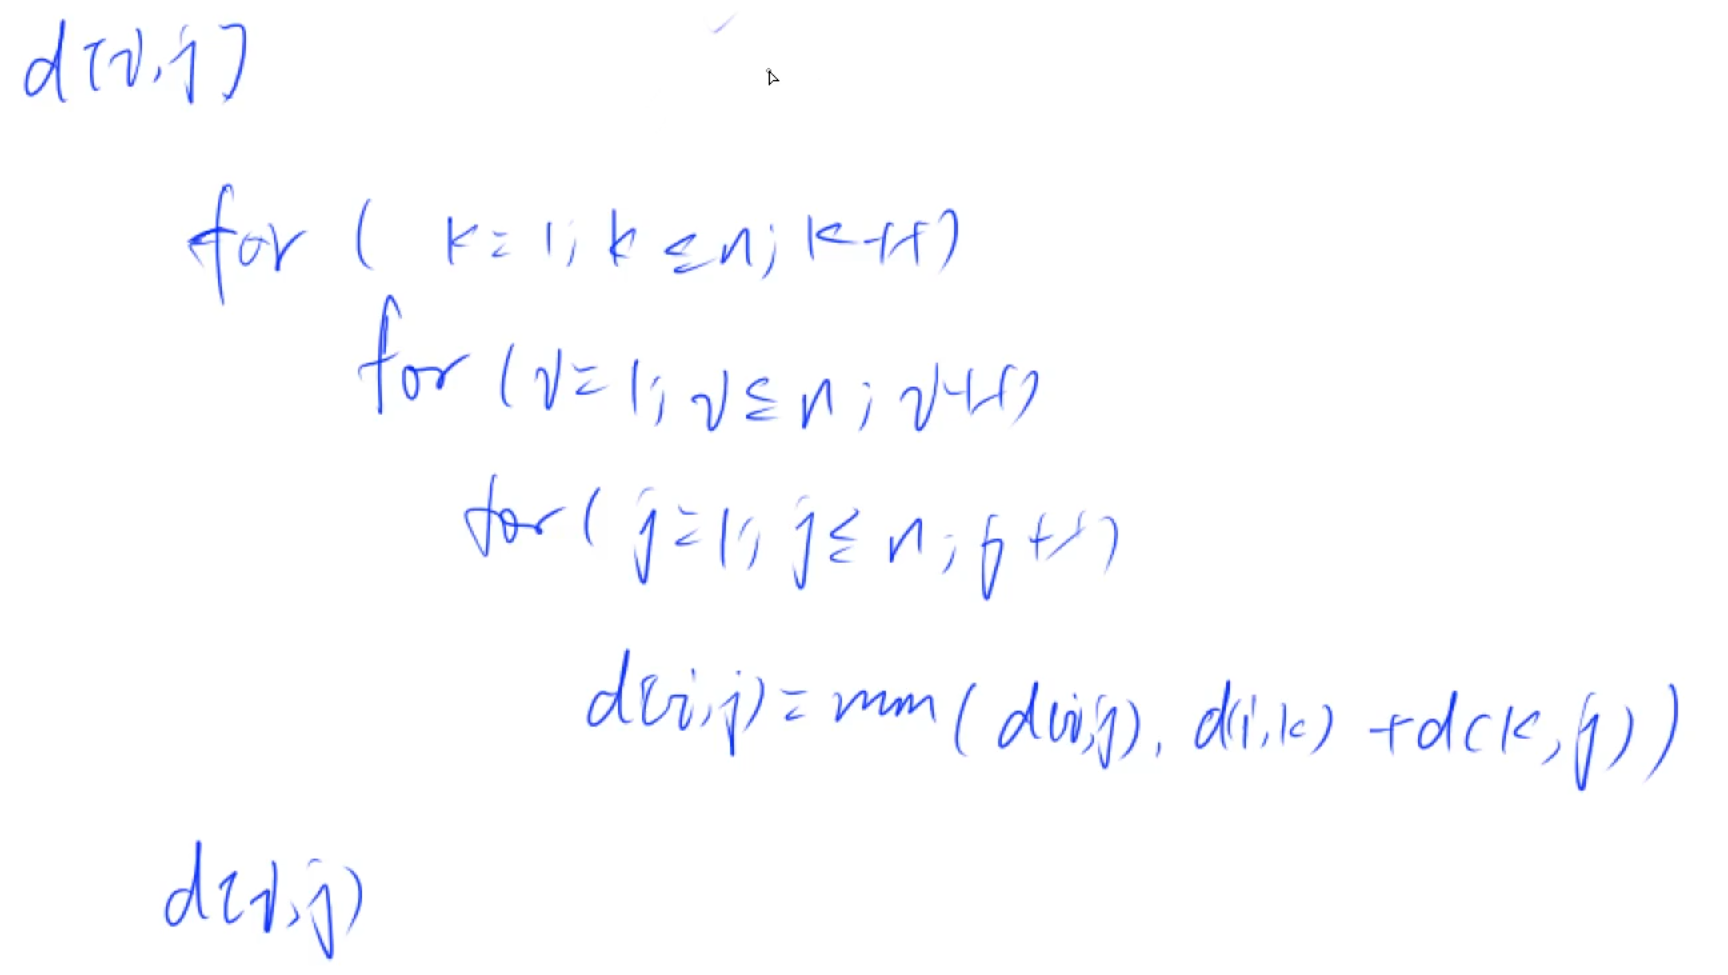 d[i,j]
for ( k=1; k≤n; k++)
for (i=1; i≤n; i++)
for( j=1; j≤n; j++)
d[i,j)=min(d(i,j), d(i,k) +d(k,j))
d[i,j)